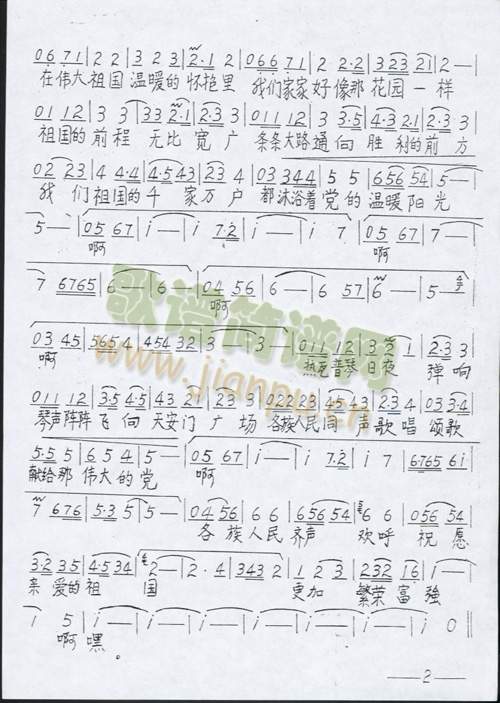 0671 | 22 | 323 | 2·12 | 066 71 | 2 2·2 | 323 21 | 2 —
在伟大祖国 温暖的怀抱里 我们家家好像那花园一样
011 12 | 3 3 | 33 2·2 | 2·3 3 | 011 12 | 3 3·5 | 4·3 2·1 | 2·3 3
祖国的前程 无比宽广 条条大路通向胜利的前方
02 23 | 4 4·4 | 4·5 43 | 23 4 | 03 344 | 5 5 | 656 54 | 5 5
我们祖国的千家万户 都沐浴着党的温暖阳光
5 — | 05 67 | i — | i 7·2 | i — | i 7 | 05 67 | 7 —
啊 啊
7 6765 | 6 — | 6 — | 04 56 | 6 — | 6 57 | 6 — | 5 —
啊
歌谱简谱网
www.jianpu.cn
03 45 | 565 4 | 454 32 | 3 — | 3 — | 011 12 | 3 | 2·3 3
啊 热瓦普琴日夜弹响
011 12 | 3·5 4·5 | 43 21 | 23 3 | 022 23 | 45 43 | 23 4 | 03 3·4
琴声阵阵飞向天安门广场 各族人民同声歌唱 颂歌
5·5 5 | 654 | 5 — | 05 67 | i — | i 7·2 | i 7 | 6·765 6i
献给那伟大的党 啊
7 676 | 5·3 5 | 5 — | 04 56 | 6 6 | 656 54 | 6 6 | 056 54
各族人民齐声欢呼祝愿
3·2 35 | 4·5 34 | 2 — | 2·4 | 343 2 | 1 2 3 | 232 16 | i —
亲爱的祖国 更加繁荣富强
i 5 | i — | i — | i — | i — | i — | i — | i 0 ‖
啊嘿。
—— 2 ——